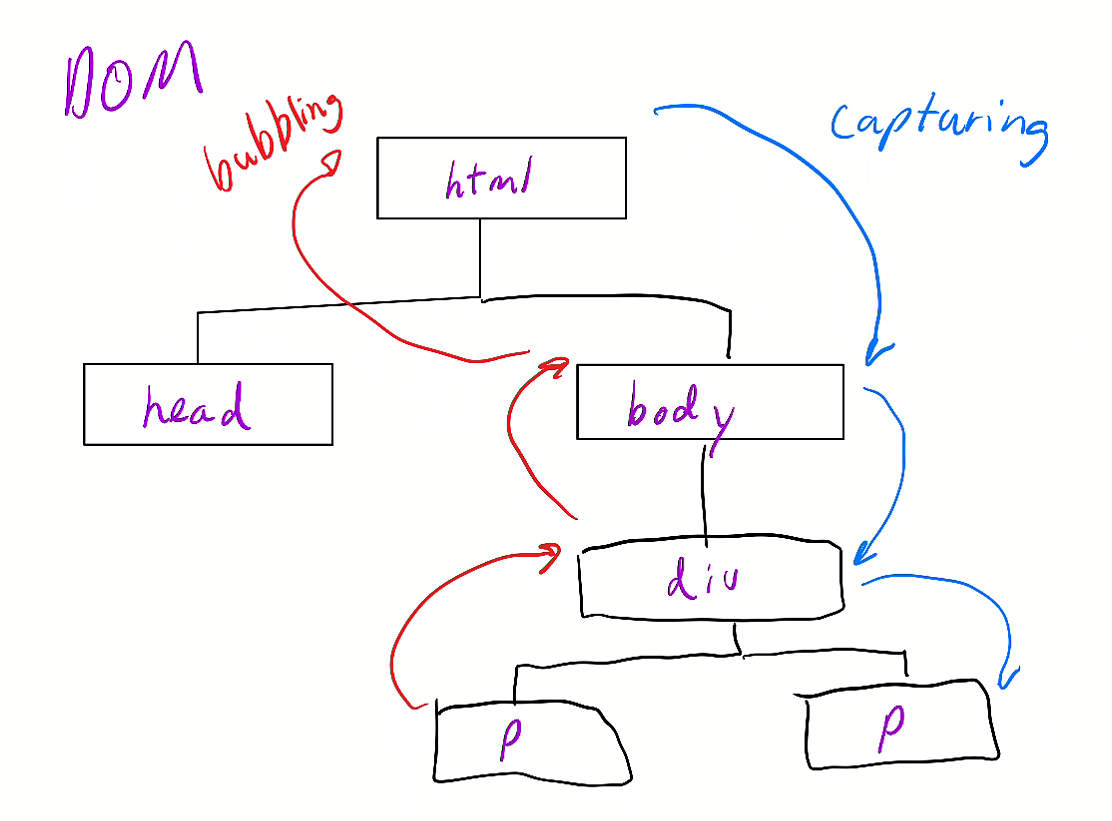 DOM
bubbling
capturing
html
head
body
div
p
p